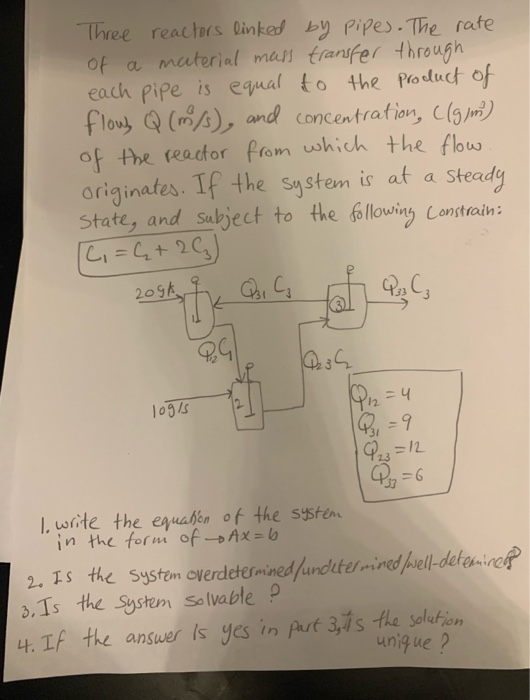 Three reactors linked by pipes. The rate
of a material mass transfer through
each pipe is equal to the product of
flow, Q (m³/s), and concentration, C (g/m³)
of the reactor from which the flow
originates. If the system is at a steady
state, and subject to the following constrain:
C₁ = C₂ + 2C₃
20 g/s Q₃₁ C₃ Q₃₃ C₃
1 3
Q₁₂ C₁ Q₂₃ C₂
10 g/s 2
Q₁₂ = 4
Q₃₁ = 9
Q₂₃ = 12
Q₃₃ = 6
1. write the equation of the system
in the form of → Ax = b
2. Is the system overdetermined/undetermined/well-determined?
3. Is the system solvable ?
4. If the answer is yes in part 3, is the solution
unique ?